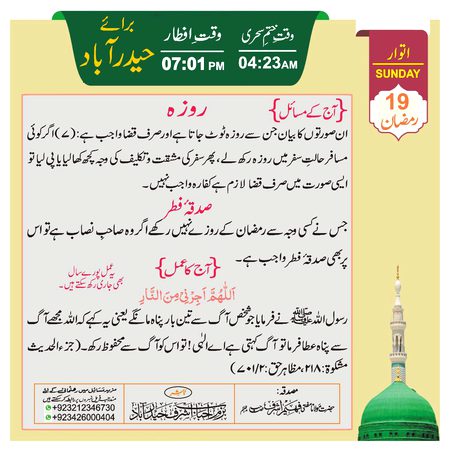 اتوار
SUNDAY
19
رمضان
وقتِ ختمِ سحری
04:23AM
وقتِ افطار
07:01 PM
برائے
حیدرآباد
{آج کے مسائل} روزہ
ان صورتوں کا بیان جن سے روزہ ٹوٹ جاتا ہے اور صرف قضا واجب ہے: (۷) اگر کوئی
مسافر حالتِ سفر میں روزہ رکھ لے، پھر سفر کی مشقت و تکلیف کی وجہ کچھ کھا لیا یا پی لیا تو
ایسی صورت میں صرف قضا لازم ہے کفارہ واجب نہیں۔
صدقۂ فطر
جس نے کسی وجہ سے رمضان کے روزے نہیں رکھے اگر وہ صاحبِ نصاب ہے تو اس
پر بھی صدقۂ فطر واجب ہے۔
{آج کا عمل}
یہ عمل پورے سال
بھی جاری رکھ سکتے ہیں۔
اَللّٰهُمَّ اَجِرْنِيْ مِنَ النَّارِ
رسول اللہ ﷺ نے فرمایا جو شخص آگ سے تین بار پناہ مانگے یعنی یہ کہے کہ اللہ مجھے آگ
سے پناہ عطا فرما تو آگ کہتی ہے اے الٰہی! تو اس کو آگ سے محفوظ رکھ۔ (جزء الحدیث
مشکوٰۃ: ۲۱۸، مظاہر حق: ۷۰۱/۲)
مصدقہ:
+923212346730
+923426000404